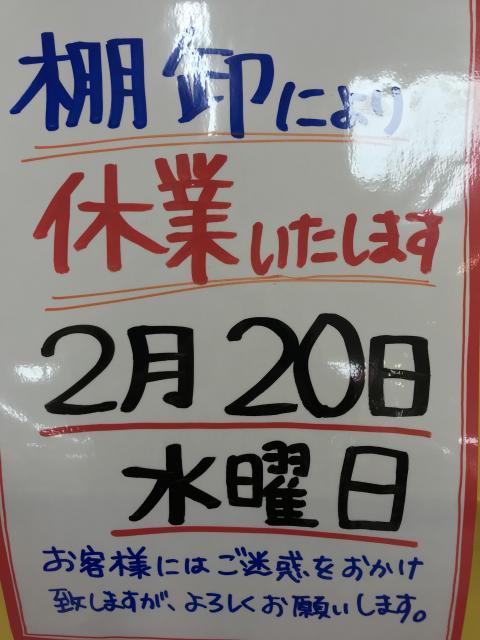 棚卸により
休業いたします
2月20日
水曜日
お客様にはご迷惑をおかけ
致しますが、よろしくお願いします。